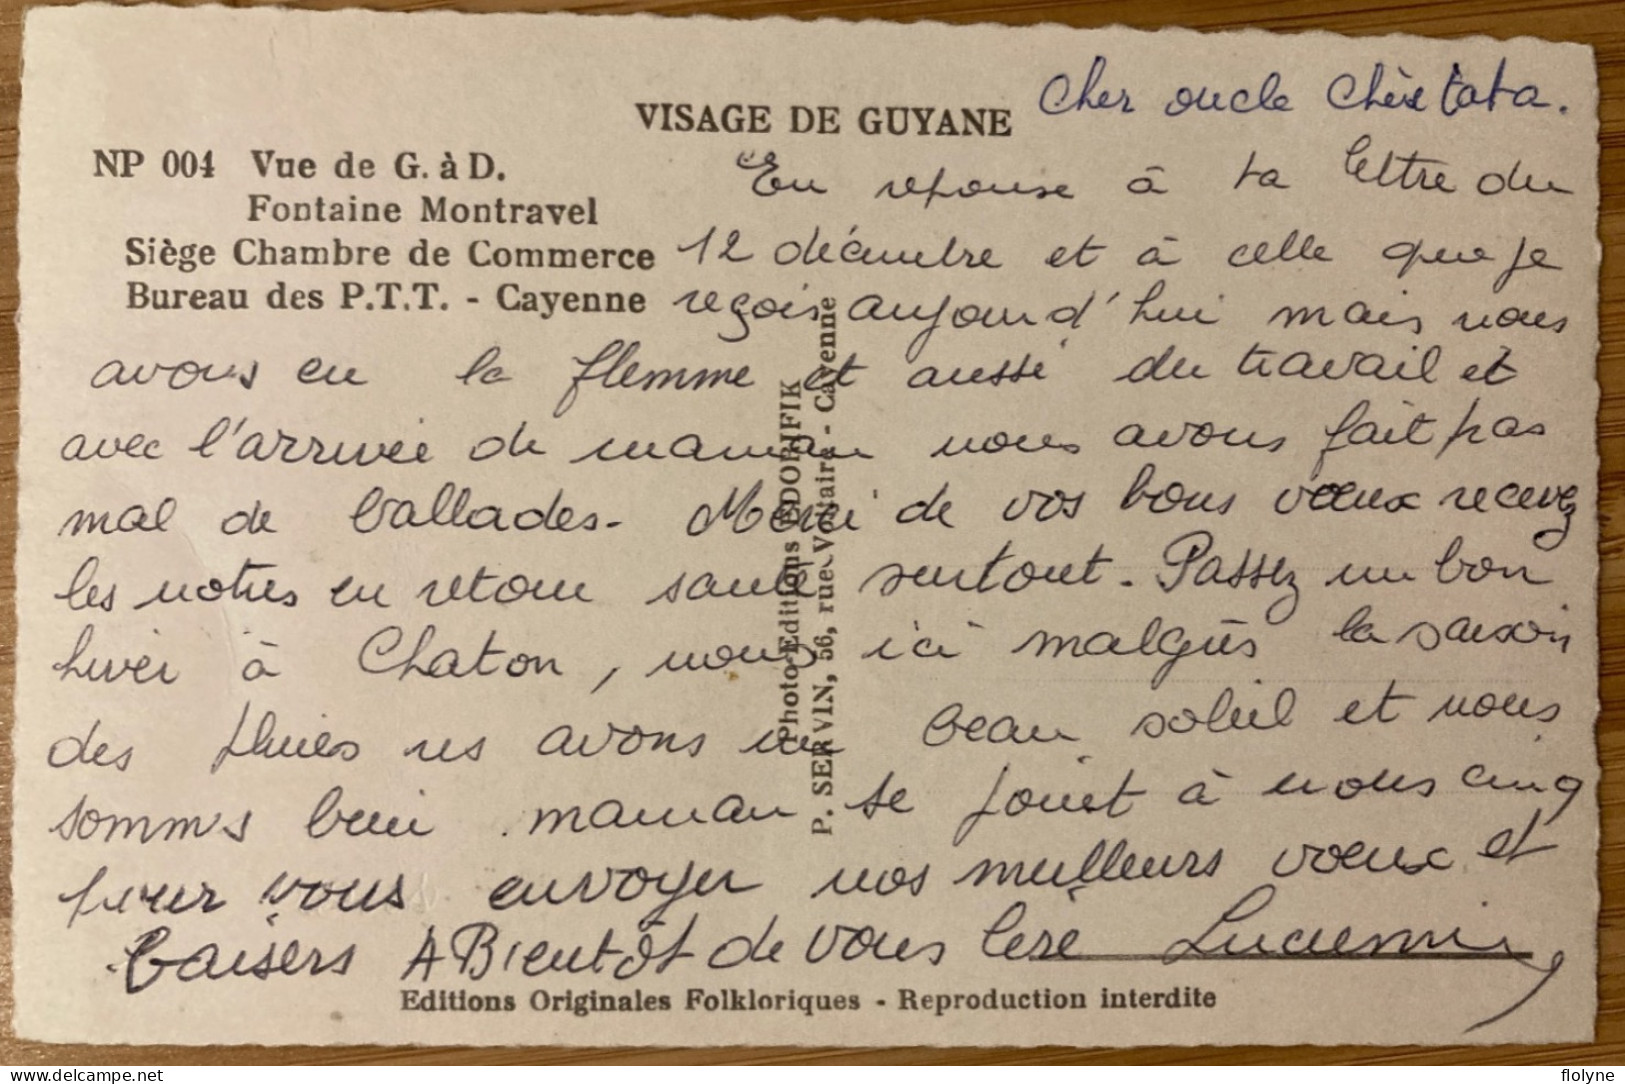 VISAGE DE GUYANE
NP 004 Vue de G. à D.
Fontaine Montravel
Siège Chambre de Commerce
Bureau des P.T.T. - Cayenne
Cher oncle Chère tata.
En reponse à ta lettre du
12 décembre et à celle que je
reçois aujourd'hui mais nous
avons eu la flemme et aussi du travail et
avec l'arrivée de maman nous avons fait pas
mal de ballades. Merci de vos bons voeux recevez
les notres en retour santé surtout. Passez un bon
hiver à Chaton, nous ici malgrès la saison
des pluies ns avons un beau soleil et nous
somms bien. maman se joint à nous cinq
pour vous envoyer nos meilleurs voeux et
baisers A Bientôt de vous lire
Photo-Editions EDORIFIK
P. SERVIN, 56, rue Voltaire - Cayenne
Editions Originales Folkloriques - Reproduction interdite
flolyne